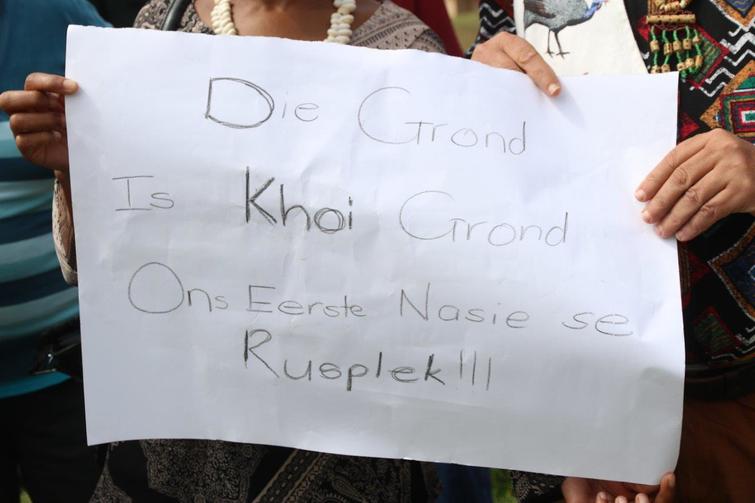 Die Grond
Is Khoi Grond
Ons Eerste Nasie se
Rusplek!!!